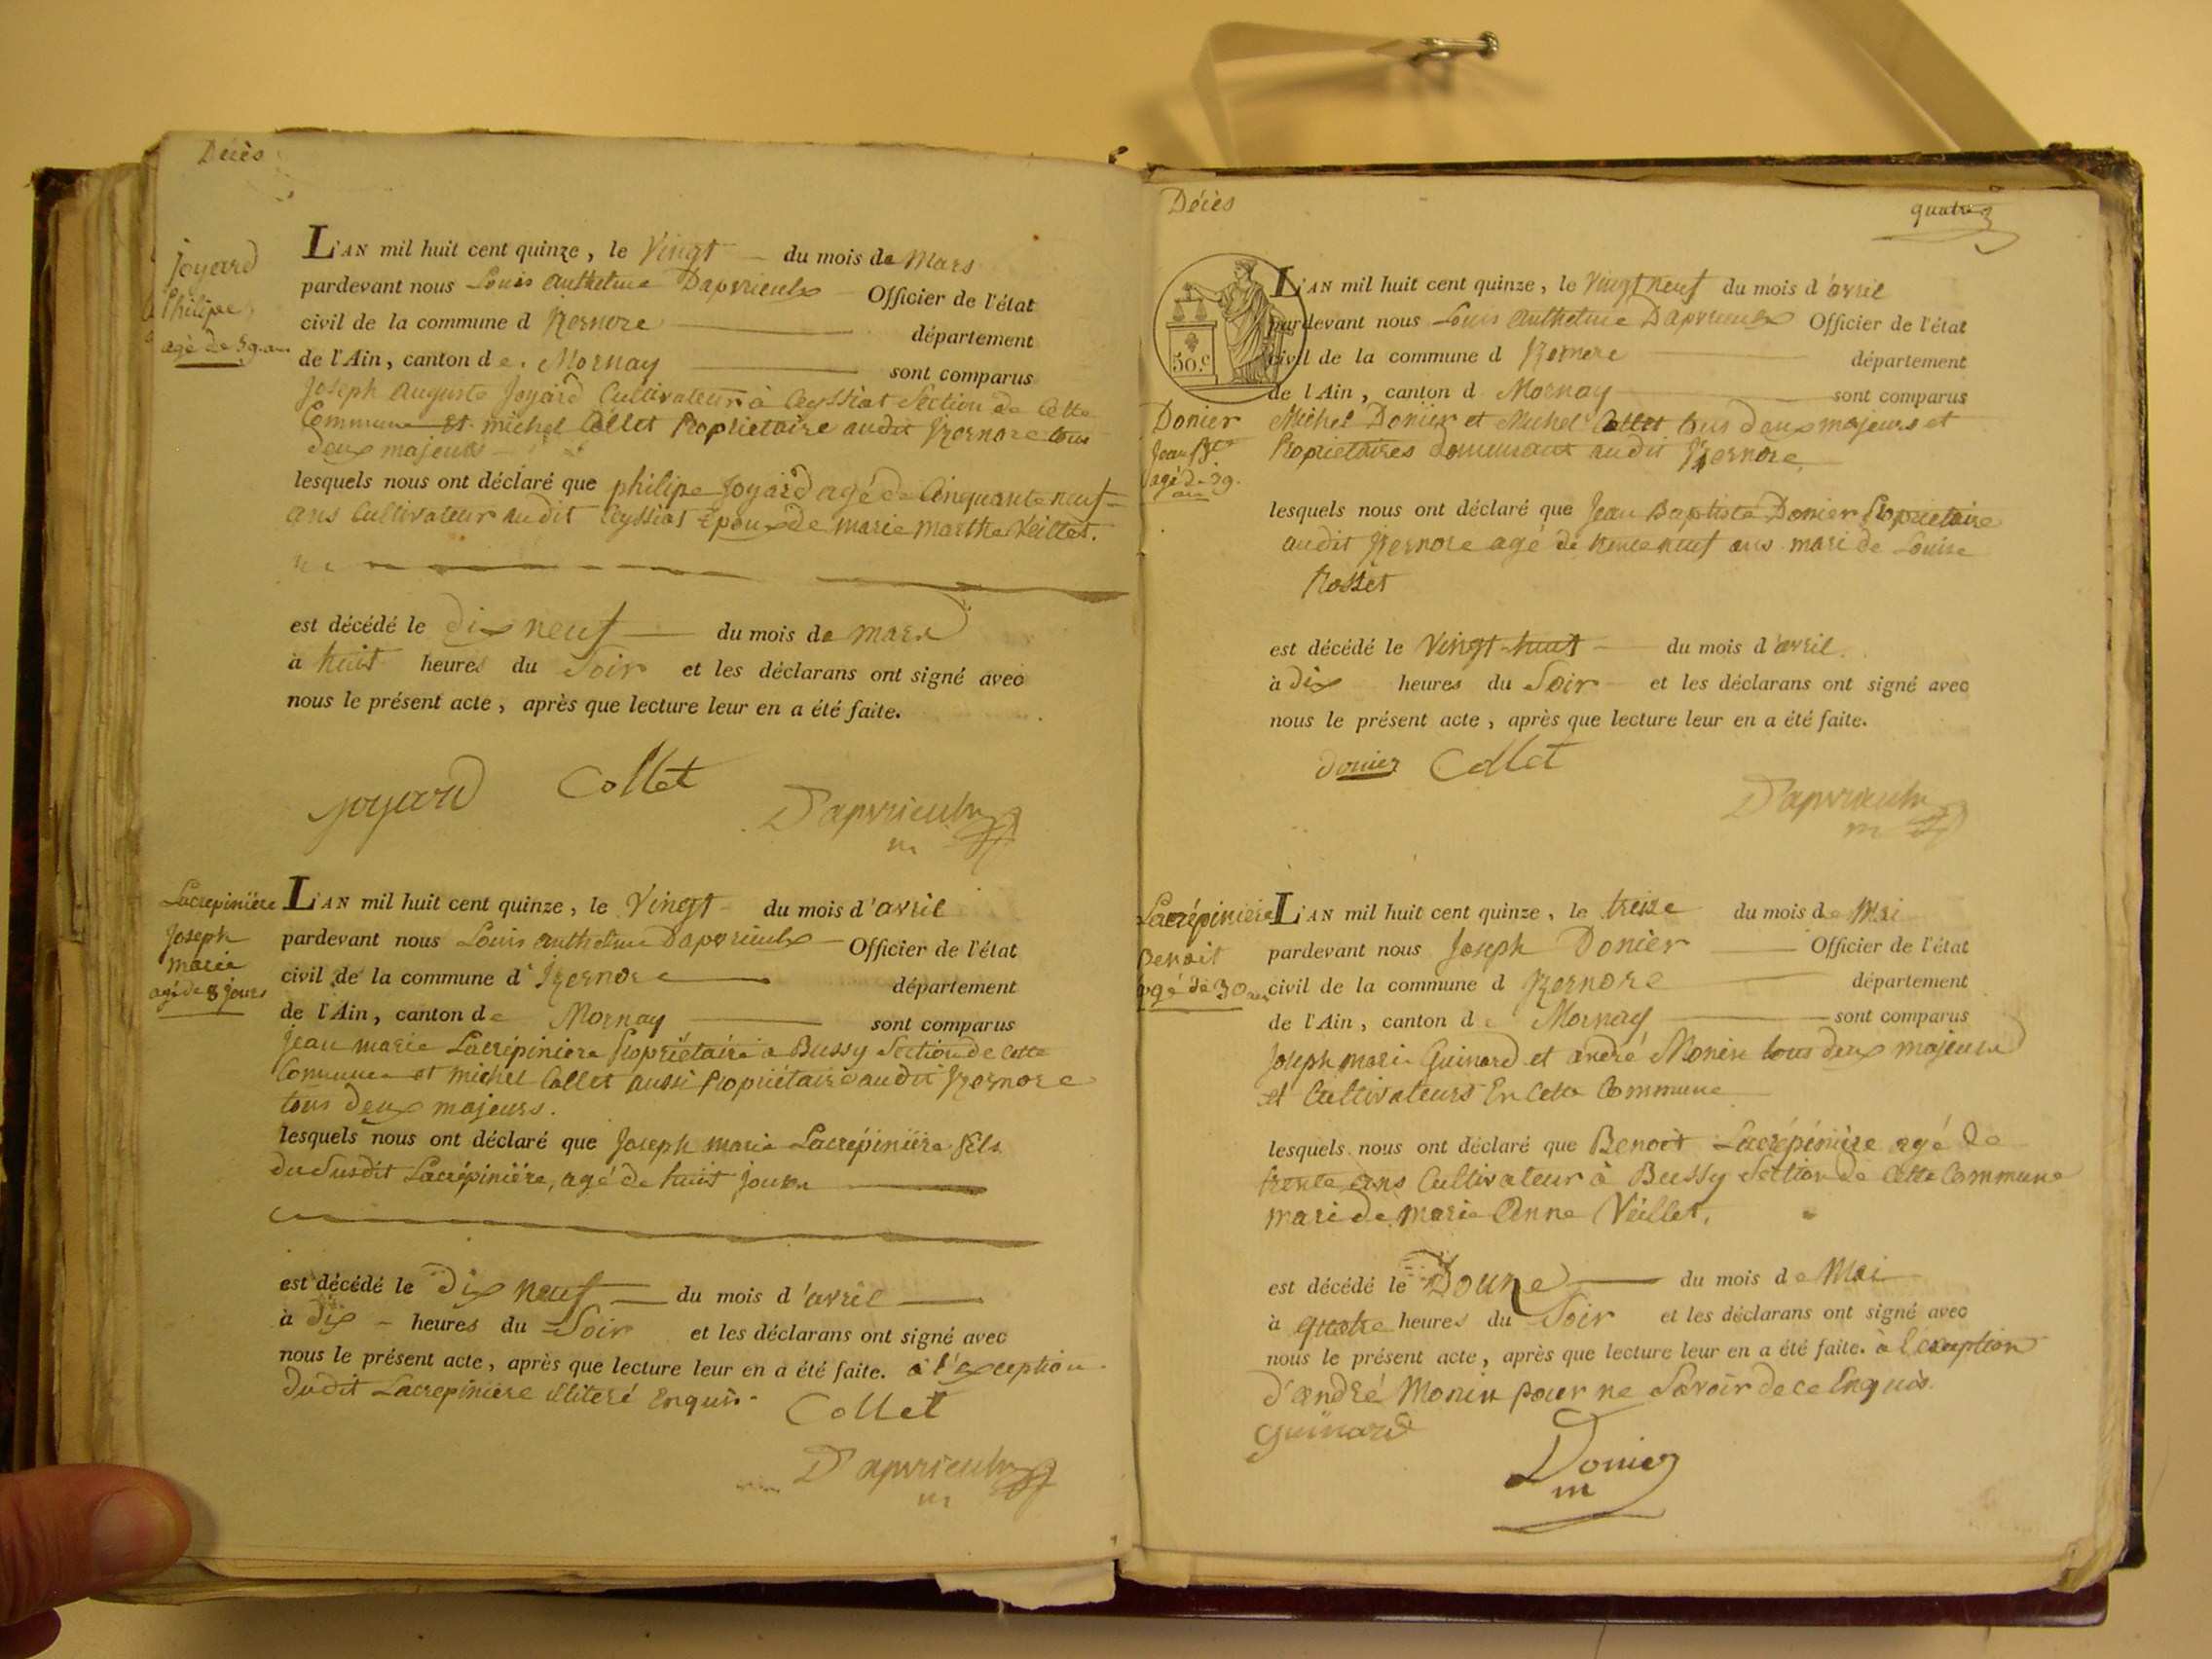 Décès
Joyard
Philipe
agé de 59 ans
L'AN mil huit cent quinze, le Vingt du mois de Mars
pardevant nous Louis Anthelme Dapvrieulx Officier de l'état
civil de la commune d'Izernore département
de l'Ain, canton de Mornay sont comparus
Joseph Auguste Joyard Cultivateur à Ceyssiat Section de Cette
Commune et michel Collet Propriétaire audit Izernore tous
deux majeurs
lesquels nous ont déclaré que philipe Joyard agé de Cinquante neuf
ans Cultivateur audit Ceyssiat Epoux de marie marthe Veillet.
est décédé le dix neuf du mois de mars
à huit heures du Soir et les déclarans ont signé avec
nous le présent acte, après que lecture leur en a été faite.
joyard Collet
Dapvrieulx
m
Lacrepinière
Joseph
marie
agé de 8 jours
L'AN mil huit cent quinze, le Vingt du mois d'avril
pardevant nous Louis anthelme Dapvrieulx Officier de l'état
civil de la commune d'Izernore département
de l'Ain, canton de Mornay sont comparus
Jean marie Lacrépinière Propriétaire à Bussy Section de cette
Commune et michel Collet aussi Propriétaire audit Izernore
tous deux majeurs.
lesquels nous ont déclaré que Joseph marie Lacrépinière fils
du susdit Lacrépinière, agé de huit jours
est décédé le dix neuf du mois d'avril
à dix heures du Soir et les déclarans ont signé avec
nous le présent acte, après que lecture leur en a été faite. à l'exception
dudit Lacrepinière illiteré Enquis
Collet
Dapvrieulx
m
Décès
quatre
50 c
Donier
Jean Bte
agé de 39
ans
L'AN mil huit cent quinze, le Vingt neuf du mois d'avril
pardevant nous Louis anthelme Dapvrieulx Officier de l'état
civil de la commune d Izernore département
de l'Ain, canton d Mornay sont comparus
Michel Donier et Michel Collet tous deux majeurs et
Propriétaires demeurant audit Izernore
lesquels nous ont déclaré que Jean Baptiste Donier Propriétaire
audit Izernore agé de trente neuf ans mari de Louise
Rosset
est décédé le Vingt-huit du mois d'avril
à dix heures du Soir et les déclarans ont signé avec
nous le présent acte, après que lecture leur en a été faite.
donier Collet
Dapvrieulx
m
Lacrépinière
Benoit
agé de 30 ans
L'AN mil huit cent quinze, le treize du mois de Mai
pardevant nous Joseph Donier Officier de l'état
civil de la commune d Izernore département
de l'Ain, canton de Mornay sont comparus
Joseph marie Guinard et andré Monin tous deux majeurs
et Cultivateurs En Cette Commune
lesquels nous ont déclaré que Benoit Lacrépinière agé de
trente ans Cultivateur à Bussy Section de Cette Commune
mari de marie Anne Veillet.
est décédé le Douze du mois de Mai
à quatre heures du Soir et les déclarans ont signé avec
nous le présent acte, après que lecture leur en a été faite. à l'exception
d'andré Monin pour ne Savoir de ce Enquis.
Guinard
Donier
m